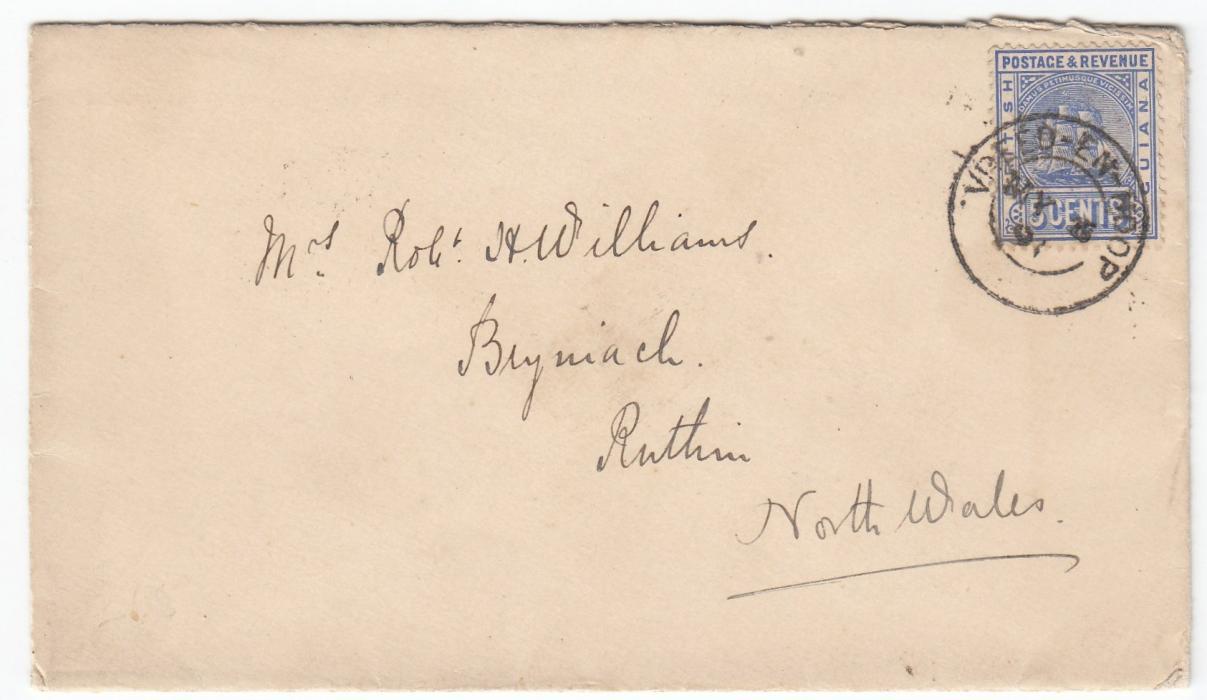 POSTAGE & REVENUE
GUIANA
DAMUS PETIMUSQUE VICISSIM
5 CENTS
VREED-EN-HOOP
Mrs Robt. H. Williams.
Bryniach.
Ruthin
North Wales.